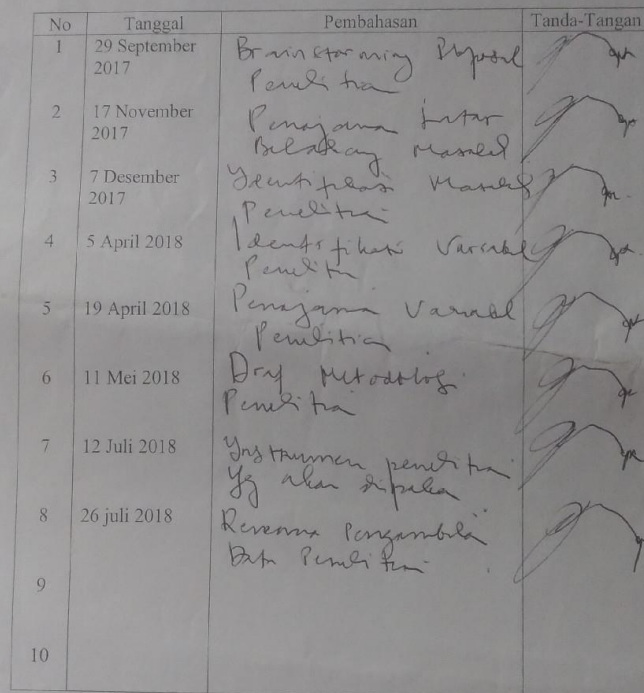 No Tanggal Pembahasan Tanda-Tangan
1 29 September Brainstorming Proposal
2017 Penelitian
2 17 November Penajaman Latar
2017 Belakang Masalah
3 7 Desember Identifikasi Masalah
2017 Penelitian
4 5 April 2018 Identifikasi Variabel
Penelitian
5 19 April 2018 Penajaman Variabel
Penelitian
6 11 Mei 2018 Draf Metodologi
Penelitian
7 12 Juli 2018 Instrumen penelitian
Yg akan dipakai
8 26 juli 2018 Rencana Pengambilan
Data Penelitian
9
10